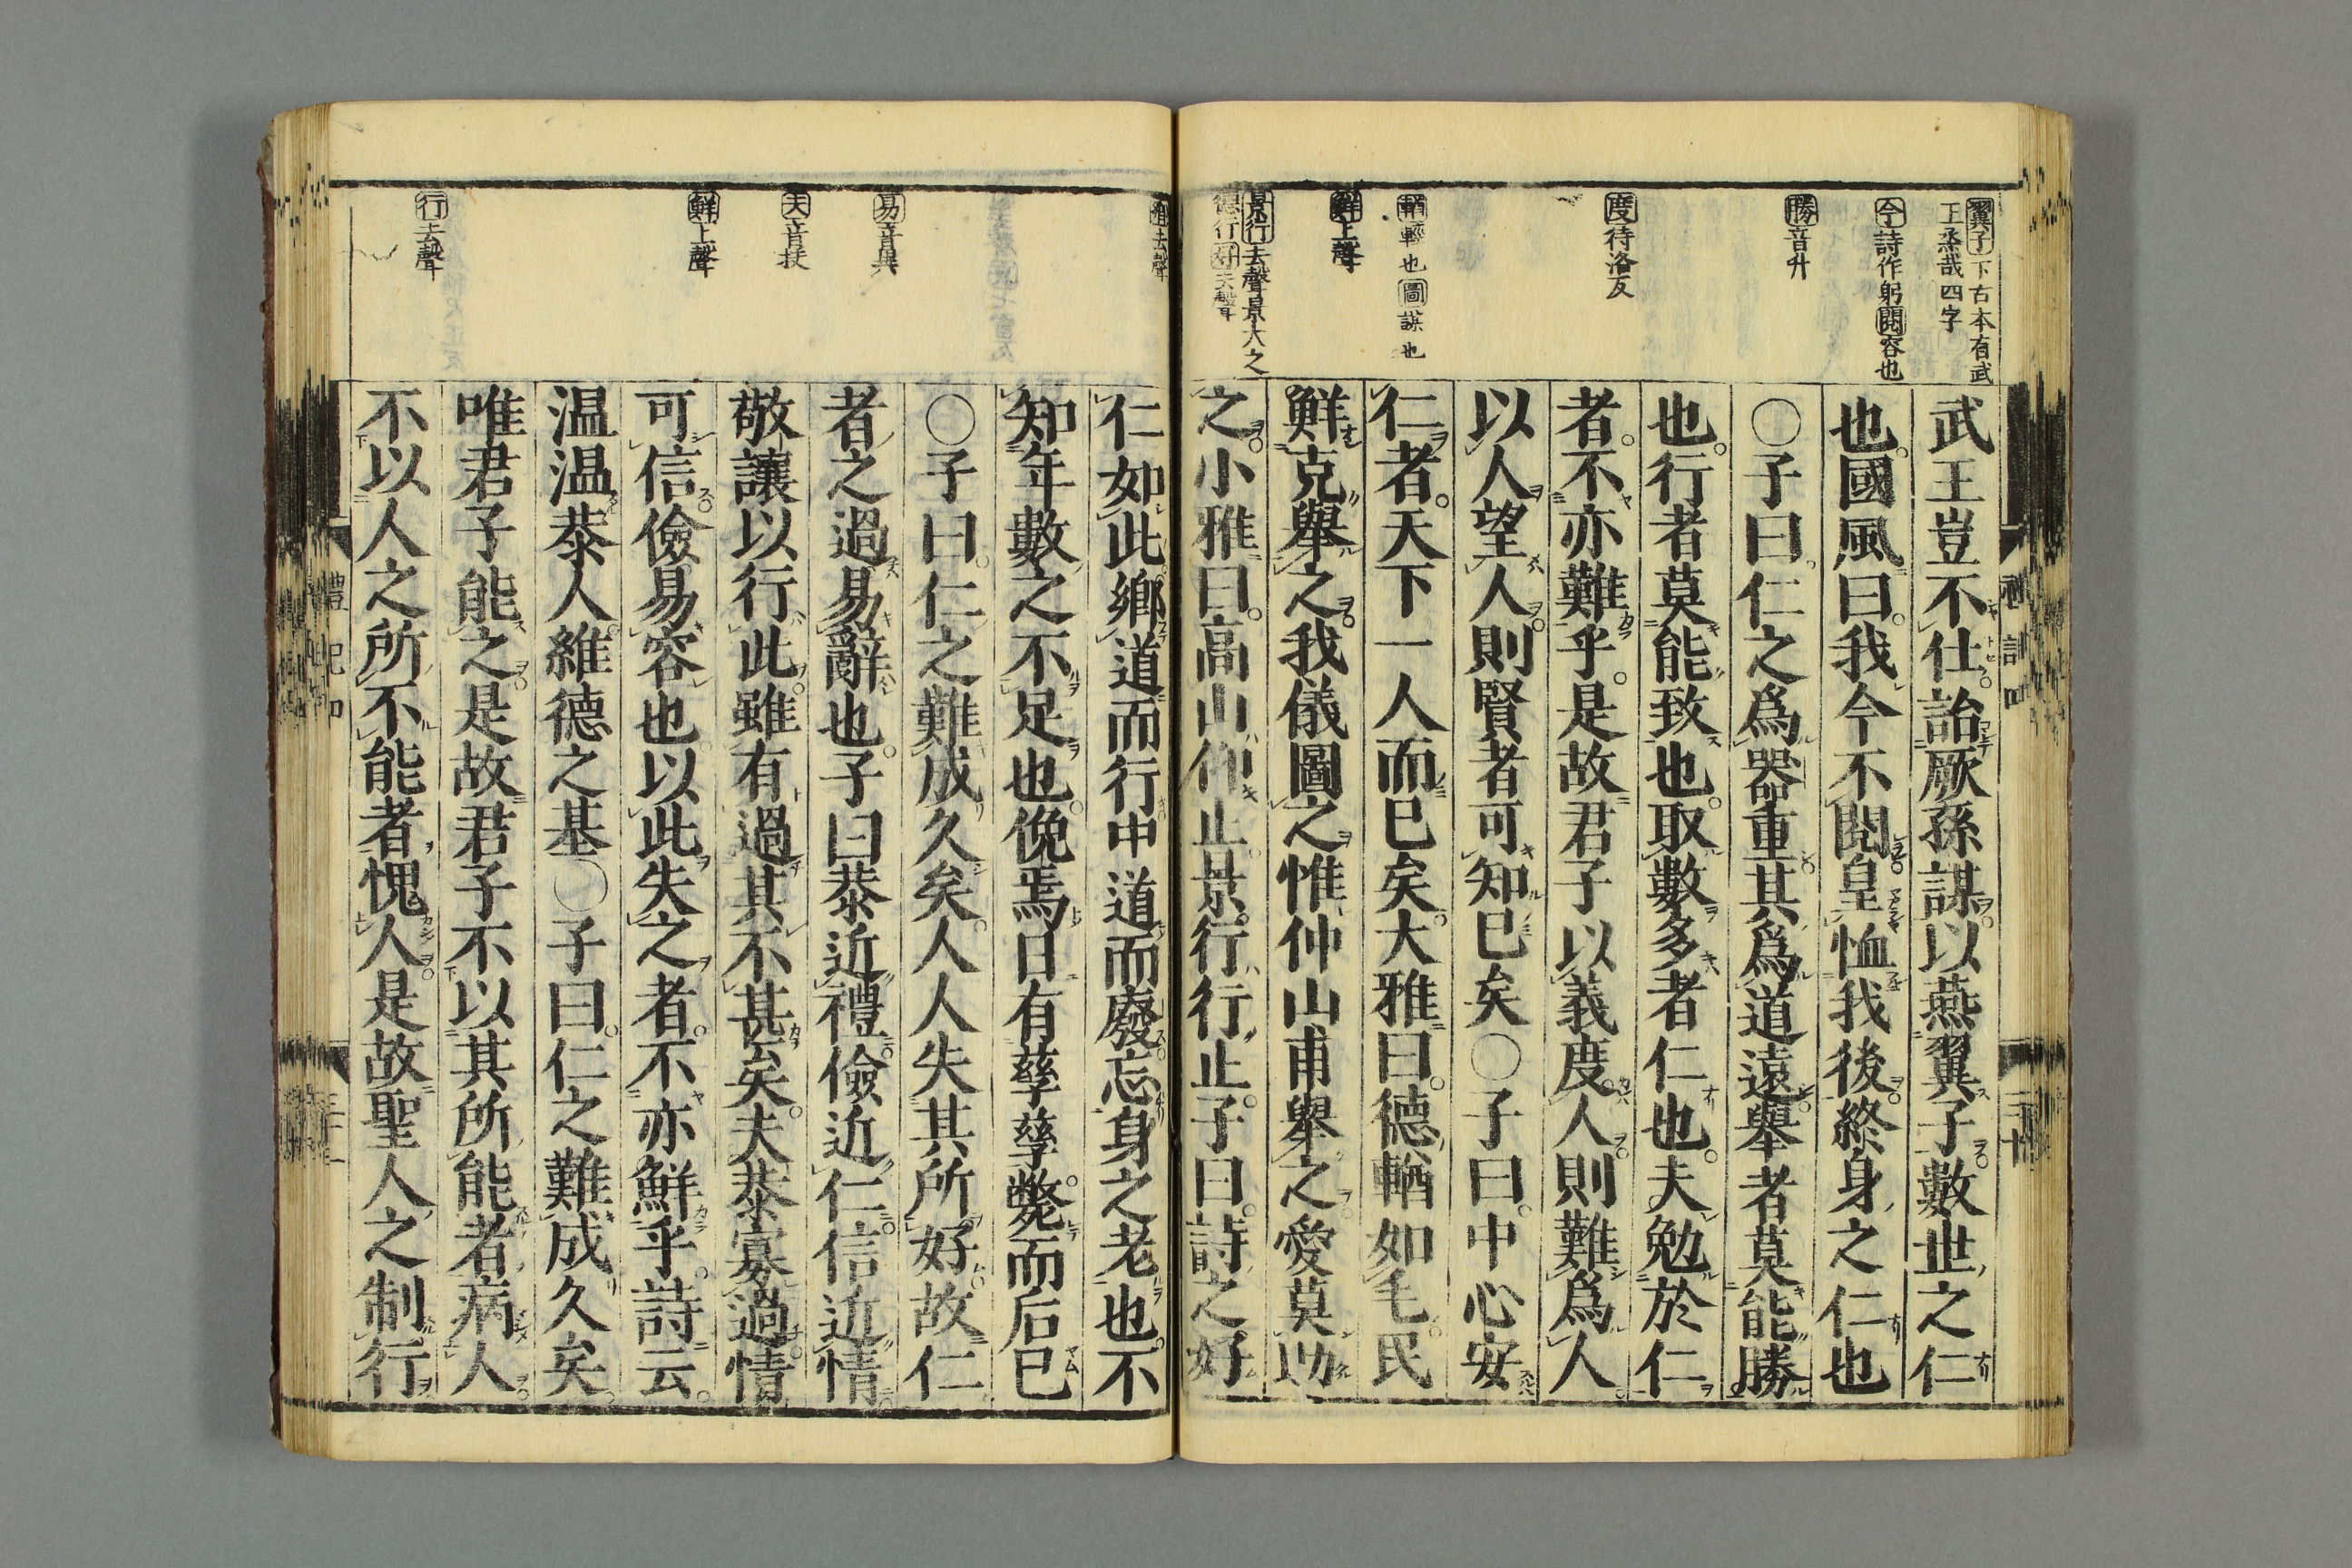 翼子下古本有武
王烝哉四字
今詩作躬閲容也
勝音升
度待洛反
輶輕也圖謀也
鮮上聲
景行去聲景大之
德行好去聲
武王豈不仕詒厥孫謀以燕翼子數世之仁
也國風曰我今不閲皇恤我後終身之仁也
○子曰仁之爲器重其爲道遠舉者莫能勝
也行者莫能致也取數多者仁也夫勉於仁
者不亦難乎是故君子以義度人則難爲人
以人望人則賢者可知已矣○子曰中心安
仁者天下一人而已矣大雅曰德輶如毛民
鮮克舉之我儀圖之惟仲山甫舉之愛莫助
之小雅曰高山仰止景行行止子曰詩之好
去聲
易音異
夫音扶
鮮上聲
行去聲
仁如此鄉道而行中道而廢忘身之老也不
知年數之不足也俛焉日有孳孳斃而后已
○子曰仁之難成久矣人人失其所好故仁
者之過易辭也子曰恭近禮儉近仁信近情
敬讓以行此雖有過其不甚矣夫恭寡過情
可信儉易容也以此失之者不亦鮮乎詩云
温温恭人維德之基○子曰仁之難成久矣
唯君子能之是故君子不以其所能者病人
不以人之所不能者愧人是故聖人之制行
禮記四
三十